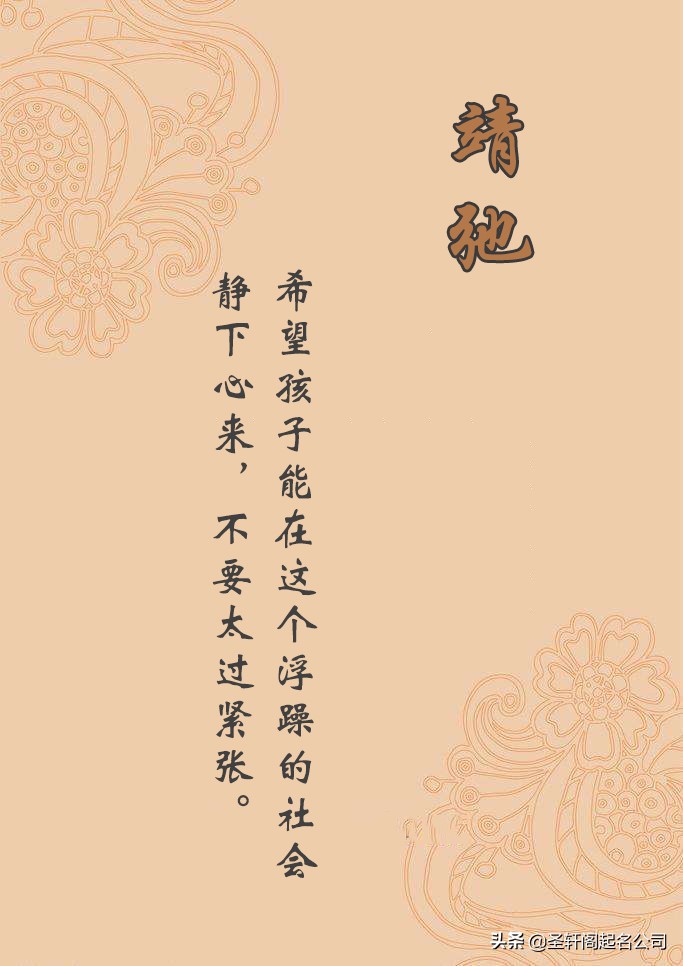 靖弛
希望孩子能在这个浮躁的社会
静下心来，不要太过紧张。
头条 @圣轩阁起名公司